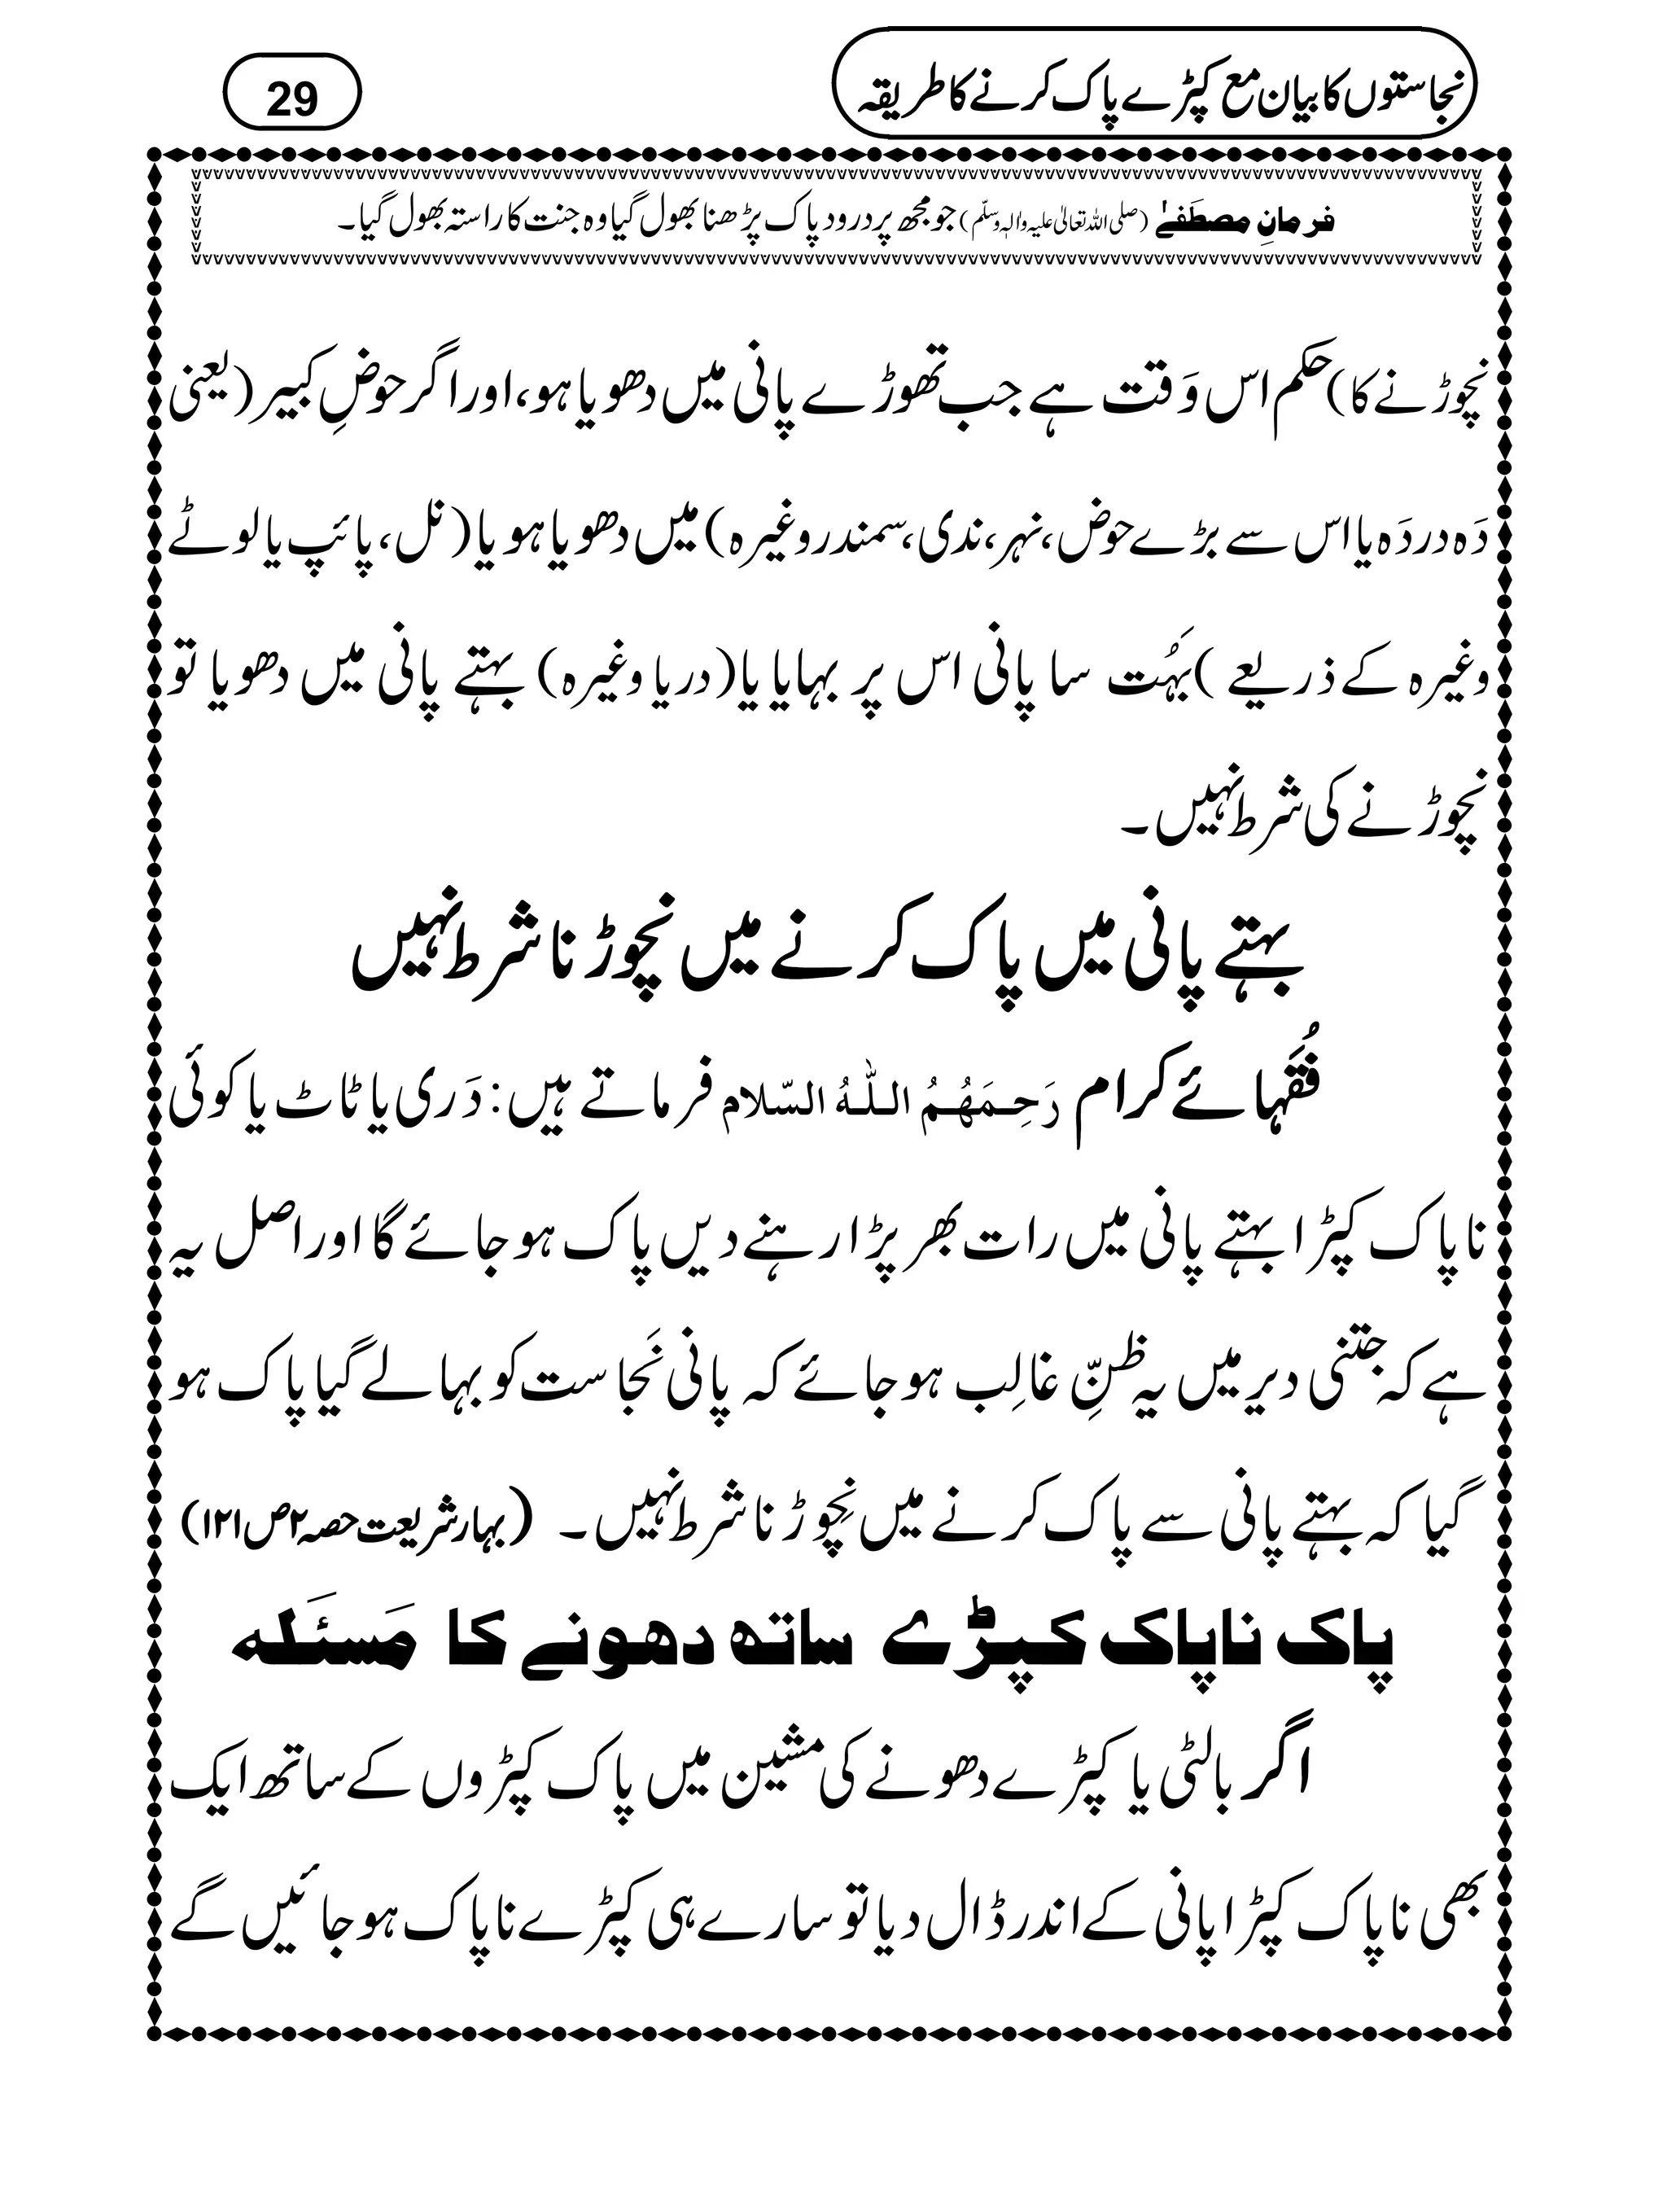 نجاستوں کا بیان مع کپڑے پاک کرنے کا طریقہ
29
فرمانِ مصطَفےٰ (صلی اللہ تعالیٰ علیہ والہٖ وسلّم) جو مجھ پر درود پاک پڑھنا بھول گیا وہ جنت کا راستہ بھول گیا۔
نچوڑنے کا) حکم اس وَقت ہے جب تھوڑے پانی میں دھویا ہو، اور اگر حوضِ کبیر (یعنی
دَہ در دَہ یا اس سے بڑے حوض، نہر، ندی، سمندر وغیرہ) میں دھویا ہو یا (نل، پائپ یا لوٹے
وغیرہ کے ذریعے) بَہُت سا پانی اس پر بہایا یا (دریا وغیرہ) بہتے پانی میں دھویا تو
نچوڑنے کی شرط نہیں۔
بہتے پانی میں پاک کرنے میں نچوڑنا شرط نہیں
فُقَہائے کرام رَحِمَهُمُ اللهُ السّلام فرماتے ہیں: دَری یا ٹاٹ یا کوئی
ناپاک کپڑا بہتے پانی میں رات بھر پڑا رہنے دیں پاک ہو جائے گا اور اصل یہ
ہے کہ جتنی دیر میں یہ ظنِّ غالِب ہو جائے کہ پانی نَجاست کو بہا لے گیا پاک ہو
گیا کہ بہتے پانی سے پاک کرنے میں نِچوڑنا شرط نہیں۔ (بہار شریعت حصہ ۲ ص ۱۲۱)
پاک ناپاک کپڑے ساتھ دھونے کا مَسئَلہ
اگر بالٹی یا کپڑے دھونے کی مشین میں پاک کپڑوں کے ساتھ ایک
بھی ناپاک کپڑا پانی کے اندر ڈال دیا تو سارے ہی کپڑے ناپاک ہو جائیں گے